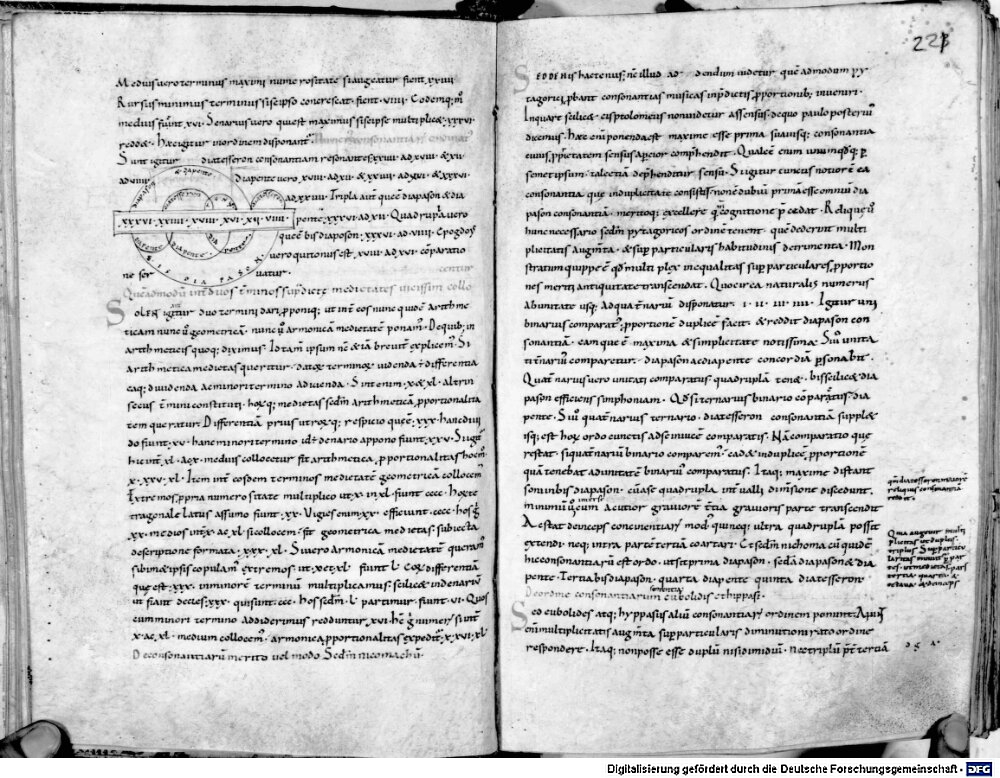 Medius uero terminus maximi numerositate si augeatur fient xxiiii
Rursus minimus terminus si se ipso concrescat fient viiii. Eodemq; m̄
medius fiunt xvi. Senarius uero qui est maximus si se ipse multiplic& xxxvi
redd&. Haec igitur in ordinem disponant̄.
Sunt igitur diatesseron consonantiam resonantes xxiiii ad xviii & xii
ad viiii diapente uero xviii ad xii & xxiiii ad xvi & xxxvi
ad xxiiii. Tripla aut̄ quae diapason & dia
xxxvi xxiiii xviii xvi xii viiii
pente xxxvi ad xii. Quadrupla uero
quae est bis diapason xxxvi ad viiii. Epogdoỹ
uero qui tonus est xviii ad xvi cōparatio
ne ser uatur.
diapason
diapente
BIS DIAPASON
Quēadmodū int̄ duos t̄minos sup̄dictę medietates uicissim collo
centur
SOLENT igitur duo termini dari, p̄poniq; ut int̄ eos nunc quidē arithme
ticam nunc ū geometricā. nunc ū armonicā medietatē ponam̄. De quib; in
arithmeticis quoq; diximus. Id tam̄ ipsum nc̄ &iā breuit̄ explicem̄. Si
arithmetica medietas queritur. datoꝝ terminoꝝ uidenda ē differentia
eaq; diuidenda ac minori termino adicienda. Sint enim x & xl altrin
secus t̄mini constituti. hoꝝq; medietas sedm̄ arithmeticā, p̄portionalita
tem queratur. Differentiā prius utroꝝq; respicio quę ē xxx. hanc diuī
do fiunt xv. hanc minori termino id ē denario appono fiunt xxv. Si igit̄
hic int̄ xl ac x medius collocetur fit arithmetica p̄portionalitas hoc m̄
x. xxv. xl. Item int̄ eosdem terminos medietatē geometricā collocem̄
Extremos p̄pria numerositate multiplico ut x in xl fiunt cccc. Hoꝝ te
tragonale latus assumo fiunt xx. Vigies enim xx efficiunt cccc. hos g̃
xx medios int̄ x ac xl si collocem̄ fit geometrica medietas subiecta
descriptione formata. xxx. xl. Si uero armonicā medietatē queram̄
sibimet ipsos copulam̄ extremos ut x et xl fiunt L. Eoꝝ differentiā
que est xxx in minorē terminū multiplicamus. scilic& in denariū
ut fiant decies xxx qui sunt ccc. hos sedm̄ L partimur fiunt vi. Quos
cum minori termino addiderimus redduntur xvi. hc̄ g̃ numerū si int̄
x ac xl medium collocem̄ armonica p̄portionalitas expedit̄ x. xvi. xl
De consonantiarū merito uel modo sedm̄ nicomachū
221
SED DE his hactenus; nc̄ illud addendum uidetur quēadmodum py
tagorici p̄bant consonantias musicas in p̄dictis p̄portionib; inueniri.
In qua re scilic& eis ptolomeus non uidetur assensus de quo paulo posteriū
dicemus. Haec enī ponenda est maxime esse prima suauisq; consonantia
cuius p̄prietatem sensus apertior comp̄hendit. Quale ē enim unūquodq; p̄
semet ipsum tale etiā dep̄henditur sensu. Si igitur cunctis notior ē ea
consonantia que in duplicitate consistit. non ē dubiū primā esse omniū dia
pason consonantiā meritoq; excellere qm̄ cognitione p̄cedat. Reliquę ū
hunc necessario sedm̄ pytagoricos ordinē tenent. quę dederint multi
plicitatis augm̄ta & sup̄particularis habitudinis detrimenta. Mon
stratum quippe ē qd̄ multiplex inęqualitas sup̄particulares p̄portio
nes meriti antiquitate transcendat. Quocirca naturalis numerus
ab unitate usq; ad quat̄nariū disponatur. i. ii. iii. iiii. Igitur uni
binarius comparat̄ p̄portionē duplicē facit & reddit diapason con
sonantiā. eam que ē maxima & simplicitate notissima. Si ū unita
ti t̄narius comparetur. diapason ac diapente concordiā p̄sonabit.
Quat̄narius uero unitati comparatus quadruplā ten&. bis scilic& dia
pason efficiens simphoniam. Qd̄ si ternarius binario cōparat̄us dia
pente. Si ū quat̄narius ternario diatesseron consonantiā suppl&
isq; est hoꝝ ordo cunctis ad se inuicē comparatis. Nā comparatio que
restat. si quat̄nariū binario comparem̄. cad& in duplicē p̄portionē
quā tenebat ad unitatē binariū comparatus. Itaq; maxime distant
soni in bis diapason cū a se quadrupla int̄ualli dimensione discedunt.
minimū ū cum acutior grauiorē t̄tia grauioris parte transcendit
Ac stat deinceps concinentiarū mod̄ qui neq; ultra quadruplā possit
extendi neq; intra partē tertiā coartari. Et sedm̄ nichomachū quidē
hic consonantiarū est ordo. ut sit prima diapason. sedā diapason & dia
pente. Tertia bis diapason. quarta diapente quinta diatesseron
De ordine consonantiarum sententia eubolidis et hippasi.
Sed eubolides atq; hyppasus aliū consonantiarū ordinem ponunt. Aiunt
enī multiplicitatis augm̄ta sup̄particularis diminutioni rato ordine
respondere. Itaq; non posse esse duplū nisi dimidiū. nec triplū p̄t̄ tertiā
Digitalisierung gefördert durch die Deutsche Forschungsgemeinschaft - DFG